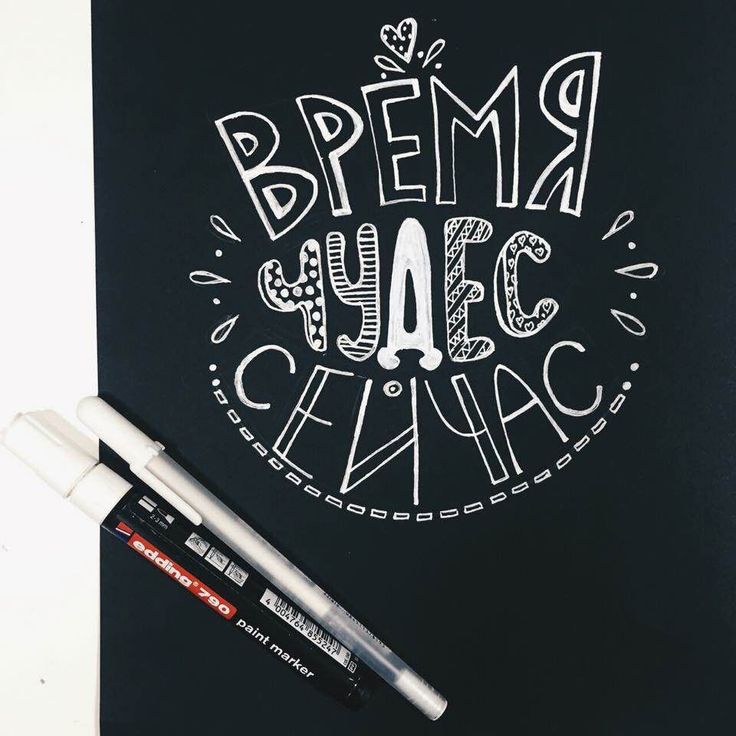 ВРЕМЯ
ЧУДЕС
СЕЙЧАС
2-3 mm
edding® 790
paint marker
4 004764 875247